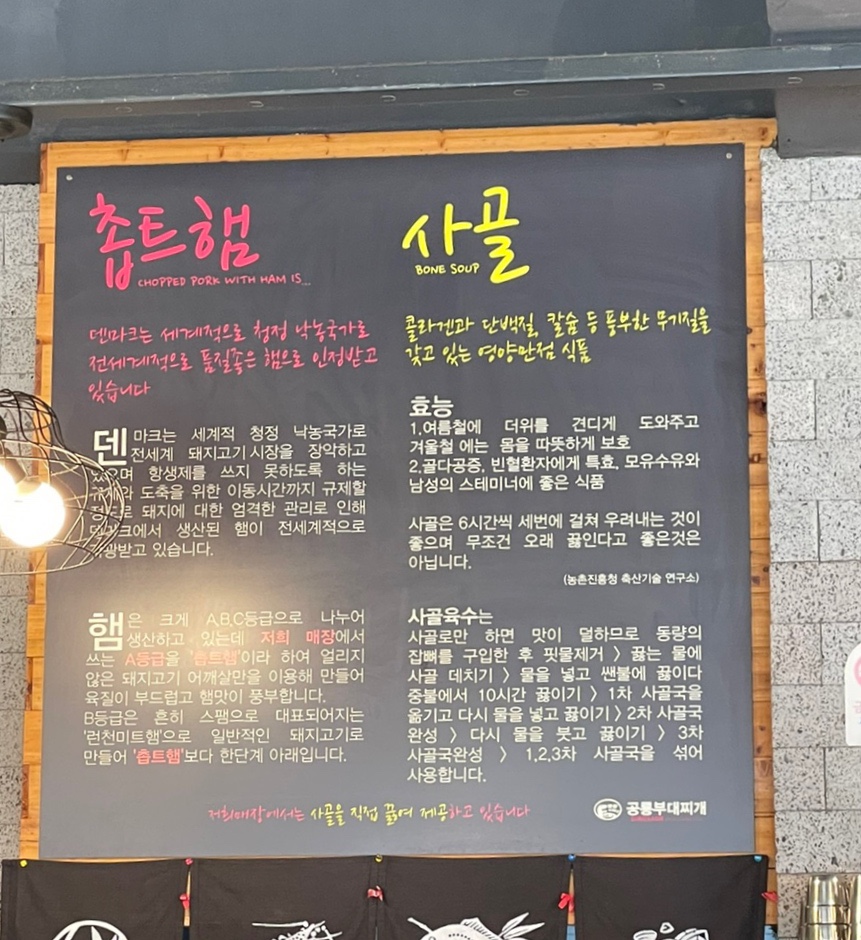 촙트햄
CHOPPED PORK WITH HAM IS...
덴마크는 세계적으로 청정 낙농국가로
전세계적으로 품질좋은 햄으로 인정받고
있습니다
덴마크는 세계적 청정 낙농국가로
전세계 돼지고기 시장을 장악하고
있으며 항생제를 쓰지 못하도록 하는
도축을 위한 이동시간까지 규제할
정도로 돼지에 대한 엄격한 관리로 인해
덴마크에서 생산된 햄이 전세계적으로
각광받고 있습니다.
햄은 크게 A,B,C등급으로 나누어
생산하고 있는데 저희 매장에서
쓰는 A등급을 '촙트햄'이라 하여 얼리지
않은 돼지고기 어깨살만을 이용해 만들어
육질이 부드럽고 햄맛이 풍부합니다.
B등급은 흔히 스팸으로 대표되어지는
'런천미트햄'으로 일반적인 돼지고기로
만들어 '촙트햄'보다 한단계 아래입니다.
사골
BONE SOUP
콜라겐과 단백질, 칼슘 등 풍부한 무기질을
갖고 있는 영양만점 식품
효능
1,여름철에 더위를 견디게 도와주고
겨울철 에는 몸을 따뜻하게 보호
2,골다공증, 빈혈환자에게 특효, 모유수유와
남성의 스테미너에 좋은 식품
사골은 6시간씩 세번에 걸쳐 우려내는 것이
좋으며 무조건 오래 끓인다고 좋은것은
아닙니다.
(농촌진흥청 축산기술 연구소)
사골육수는
사골로만 하면 맛이 덜하므로 동량의
잡뼈를 구입한 후 핏물제거 > 끓는 물에
사골 데치기 > 물을 넣고 쌘불에 끓이다
중불에서 10시간 끓이기 > 1차 사골국을
옮기고 다시 물을 넣고 끓이기 > 2차 사골국
완성 > 다시 물을 붓고 끓이기 > 3차
사골국완성 > 1,2,3차 사골국을 섞어
사용합니다.
저희매장에서는 사골을 직접 끓여 제공하고 있습니다
공룡부대찌개